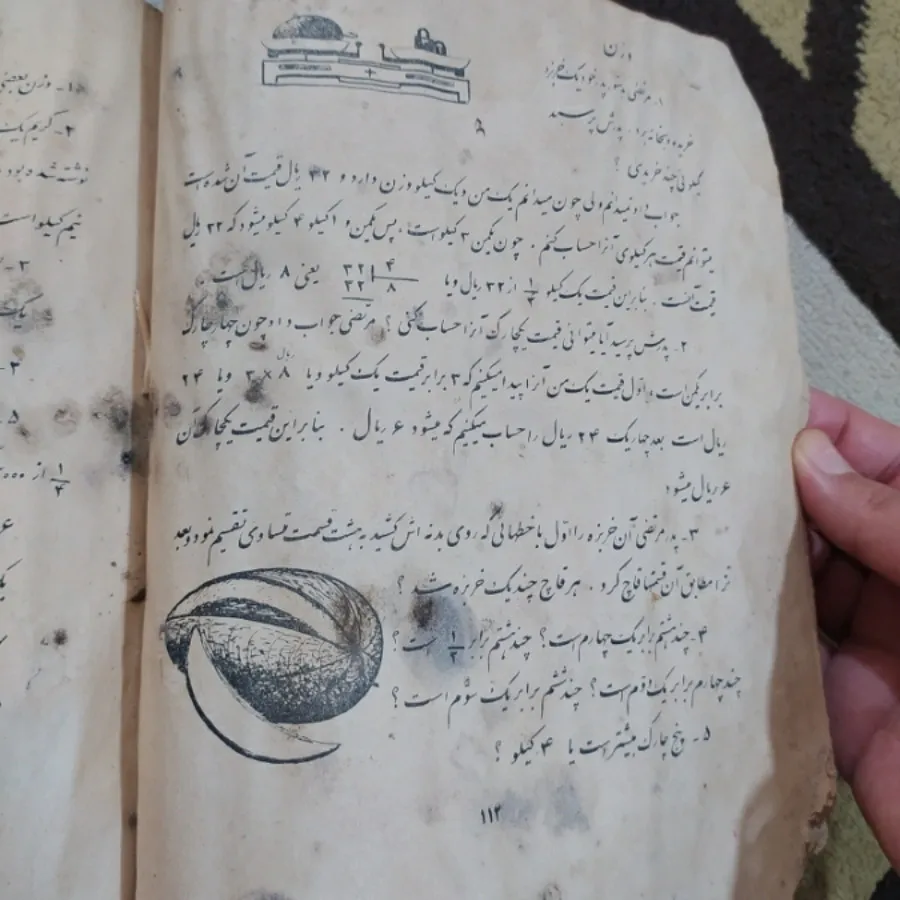 وزن
۱ـ مرتضی بدستور پدر خود یک خربزه
خرید و بخانه برد. پدرش پرسید
کیلوئی چند خریدی ؟
جواب داد نمیدانم ولی چون میدانم یک من و یک کیلو وزن دارد و ۳۲ ریال قیمت آن شده است
میتوانم قیمت هر کیلوی آنرا حساب کنم . چون یکمن ۳ کیلو است، پس یکمن و ۱ کیلو ۴ کیلو میشود که ۳۲ ریال
قیمت آنست . بنابراین قیمت یک کیلو ۱/۴ از ۳۲ ریال و یا ۳۲ ۴ ۳۲ ۸ یعنی ۸ ریال است .
۲ـ پدرش پرسید آیا میتوانی قیمت یکچارک آنرا حساب کنی ؟ مرتضی جواب داد چون چهار چارک
برابر یکمن است و اول قیمت یک من آنرا پیدا میکنیم که ۳ برابر قیمت یک کیلو و یا ۸ ریال × ۳ و یا ۲۴
ریال است بعد چهار یک ۲۴ ریال را حساب میکنیم که میشود ۶ ریال . بنابراین قیمت یکچارک آن
۶ ریال میشود
۳ـ پدر مرتضی آن خربزه را اوّل با خطهائی که روی بدنه اش کشید به هشت قسمت متساوی تقسیم نمود و بعد
مطابق آن قسمتها قاچ کرد . هر قاچ چند یک خربزه شد ؟
۴ـ چند هشتم برابر یک چهارم است؟ چند هشتم برابر ۱/۲ است ؟
چند چهارم برابر یک دوّم است؟ چند ششم برابر یک سوّم است ؟
۵ـ پنج چارک بیشتر است یا ۴ کیلو ؟
۱۱۲
۱ـ وزن بعضی
۲ـ کریم یک
نوشته شده بود
نیم کیلو است
۳ـ
یک
۴ـ
۵ـ
۱/۴ از